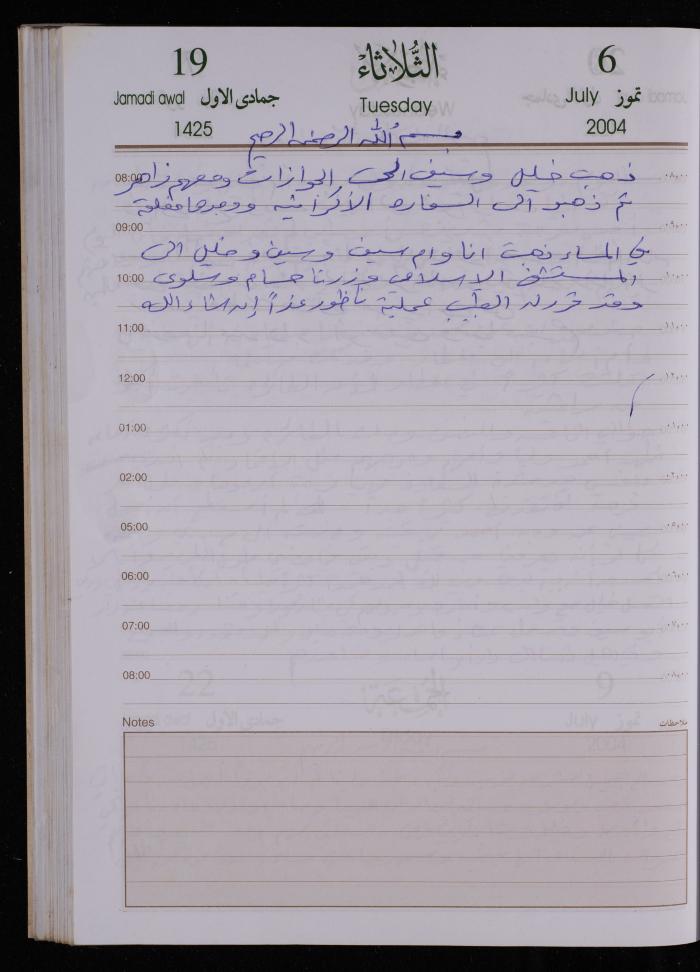 19 الثُّلاثاء 6
Jamadi awal جمادى الاول Tuesday July تموز
1425 2004
بسم الله الرحمن الرحيم
08:00 ذهب خليل وسيف الى الجوازات ومعهم زاهر ٠٨:٠٠
ثم ذهبو الى السفاره الأكرانيه ووجدها مغلقة
09:00 ٠٩:٠٠
في المساء ذهبت انا وام سيف وسيف وخليل الى
10:00 المستشفى الإسلامي وزرنا حسام وسلوى ١٠:٠٠
وقد قرر له الطبيب عملية ناظور غداً إن شاء الله
11:00 ١١:٠٠
12:00 ١٢:٠٠
01:00 ٠١:٠٠
02:00 ٠٢:٠٠
05:00 ٠٥:٠٠
06:00 ٠٦:٠٠
07:00 ٠٧:٠٠
08:00 ٠٨:٠٠
Notes ملاحظات